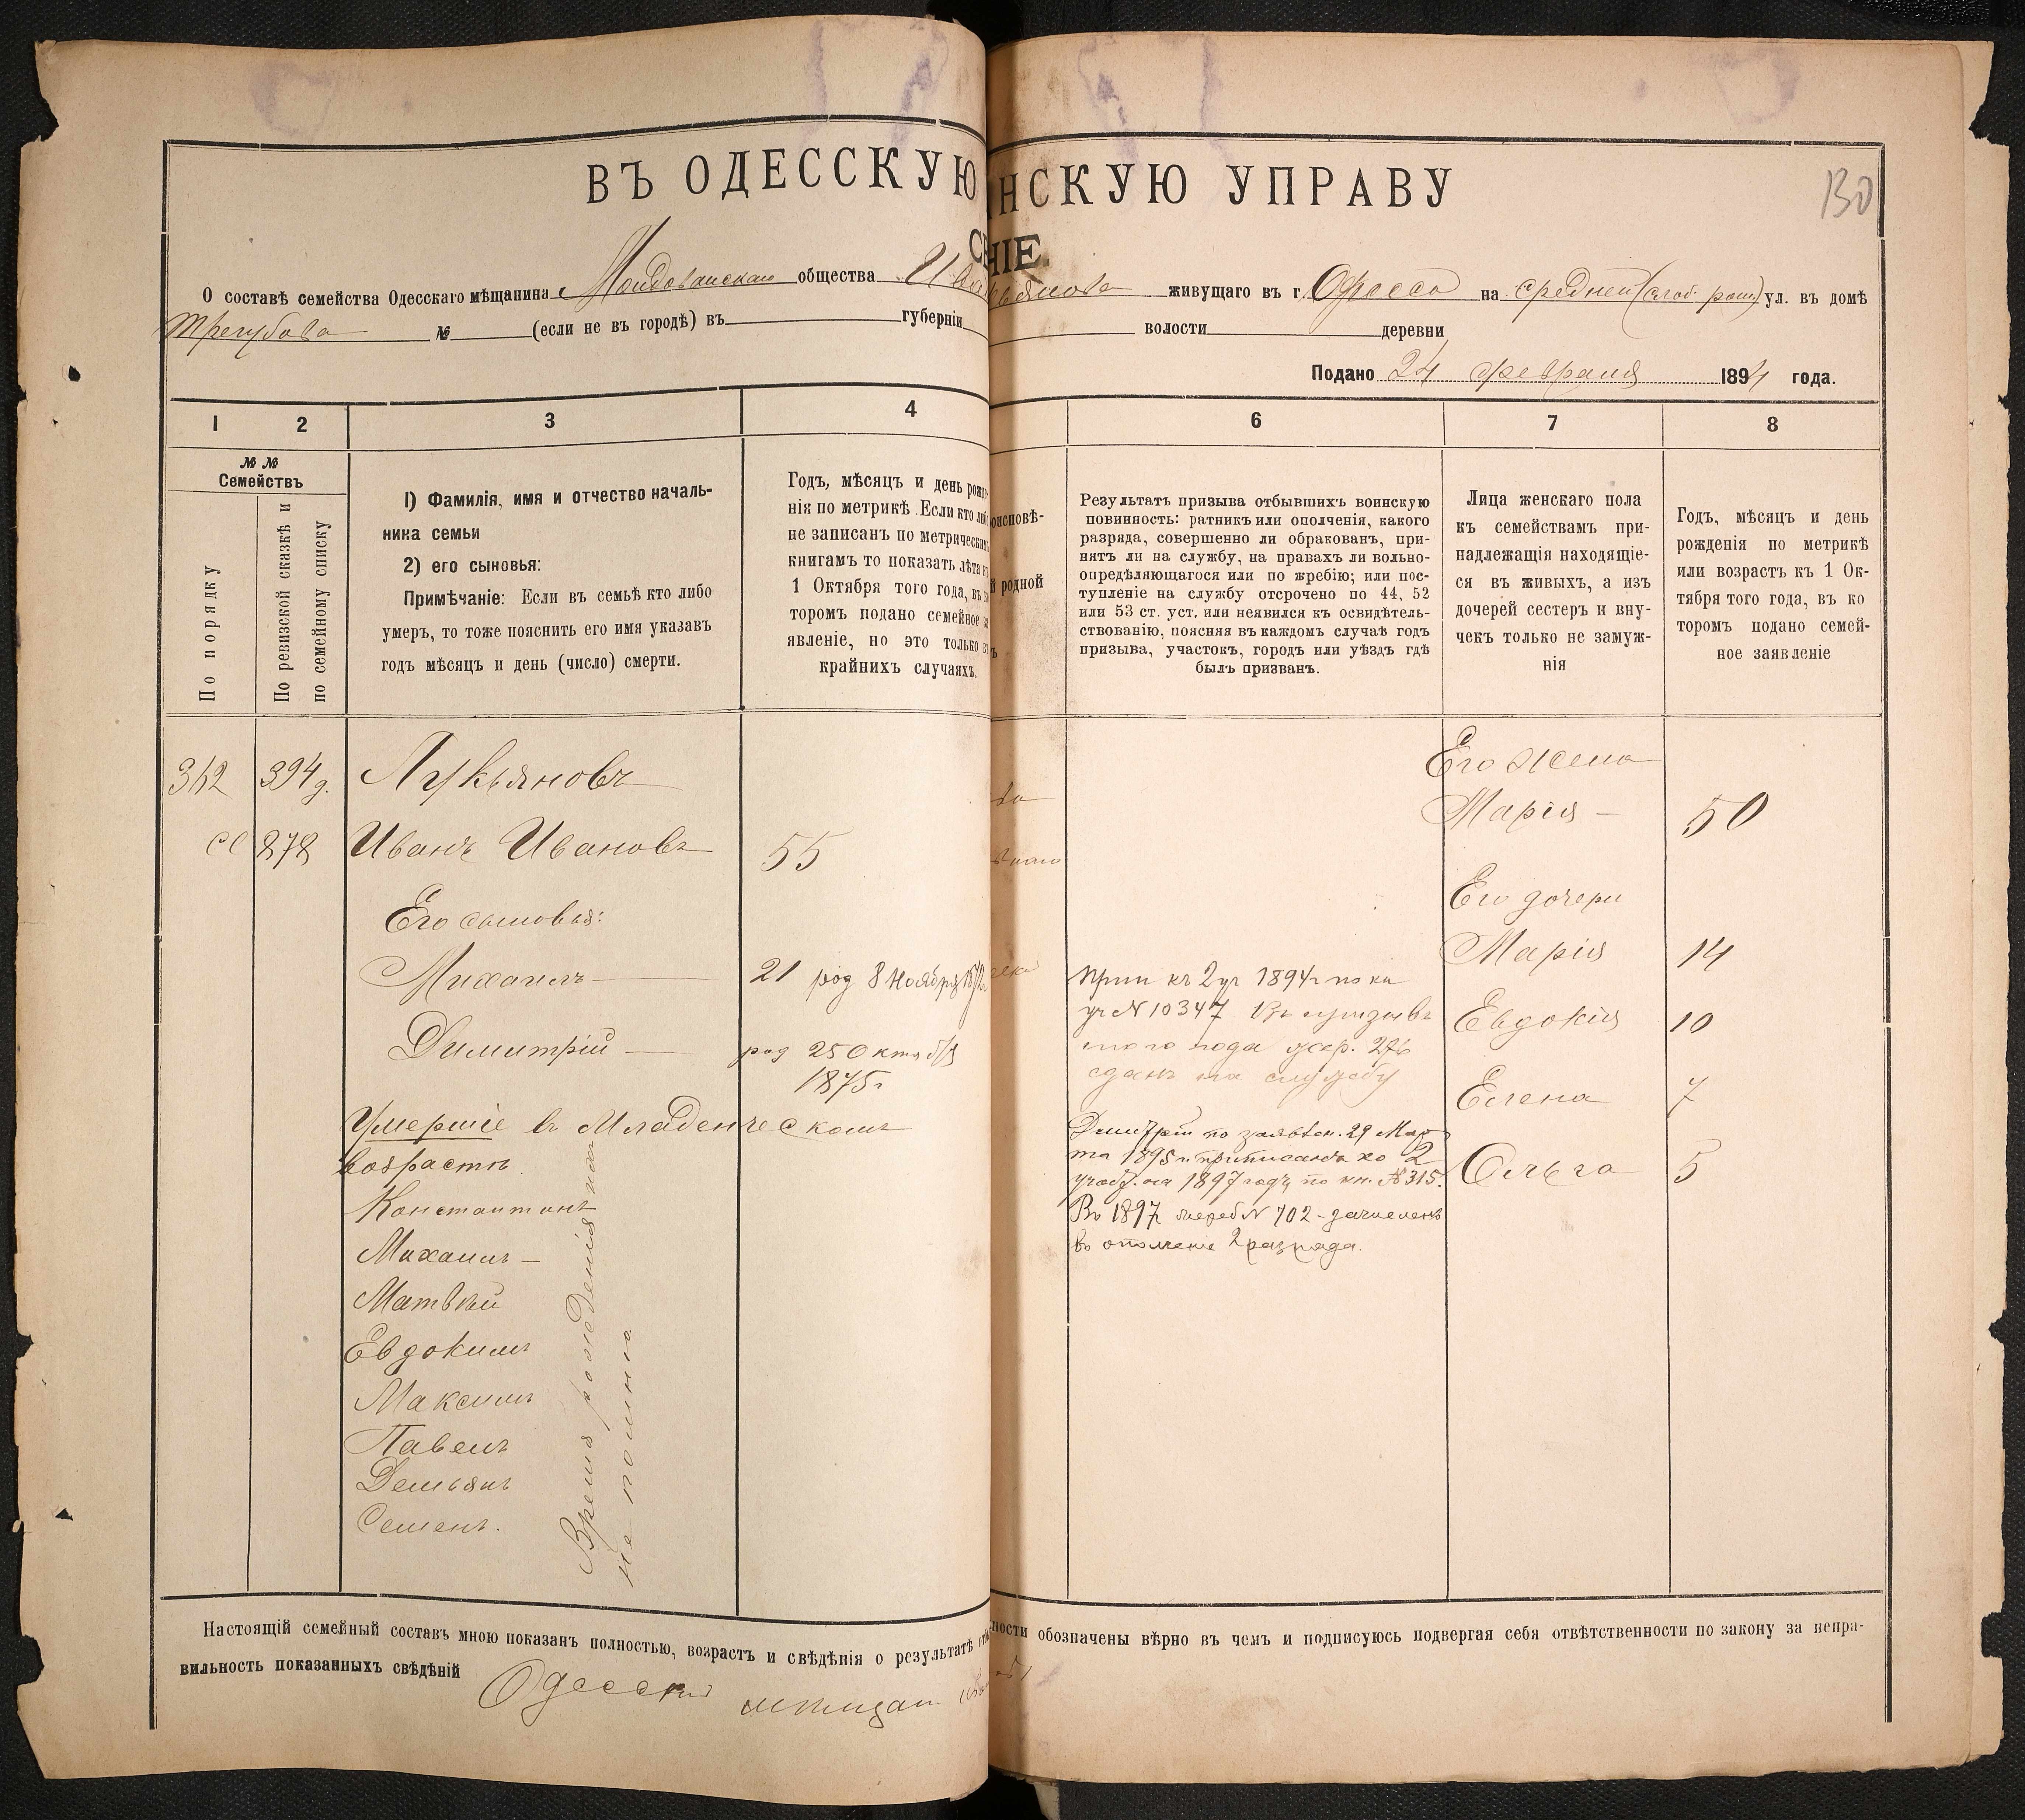 ВЪ ОДЕССКУЮ НСКУЮ УПРАВУ
130
НІЕ
О составѣ семейства Одесскаго мѣщанина Молдованскаго общества живущаго въ г. Одесса на средней ул. въ домѣ
Трегубова № (если не въ городѣ) въ губерніи волости деревни
Подано 24 февраля 1894 года.
1 2 3 4 6 7 8
№ № Семействъ
По порядку
По ревизской сказкѣ и по семейному списку
1) Фамилія, имя и отчество началь-
ника семьи
2) его сыновья:
Примѣчаніе: Если въ семьѣ кто либо
умеръ, то тоже пояснить его имя указавъ
годъ мѣсяцъ и день (число) смерти.
Годъ, мѣсяцъ и день рожде
нія по метрикѣ. Если кто либо
не записанъ по метрическимъ
книгамъ то показать лѣта къ
1 Октября того года, въ ко
торомъ подано семейное за
явленіе, но это только въ
крайнихъ случаяхъ.
оисповѣ-
й родной
Результатъ призыва отбывшихъ воинскую
повинность: ратникъ или ополченія, какого
разряда, совершенно ли обракованъ, при-
нятъ ли на службу, на правахъ ли вольно-
опредѣляющагося или по жребію; или пос-
тупленіе на службу отсрочено по 44, 52
или 53 ст. уст. или неявился къ освидѣтель-
ствованію, поясняя въ каждомъ случаѣ годъ
призыва, участокъ, городъ или уѣздъ гдѣ
былъ призванъ.
Лица женскаго пола
къ семействамъ при-
надлежащія находящіе-
ся въ живыхъ, а изъ
дочерей сестеръ и вну-
чекъ только не замуж-
нія
Годъ, мѣсяцъ и день
рожденія по метрикѣ
или возрастъ къ 1 Ок-
тября того года, въ ко
торомъ подано семей-
ное заявленіе
394 д. Лукьяновъ
878 Иванъ Ивановъ 55
Его сыновья:
Михаилъ — 21 род 8 Ноября 1872
Димитрій — род 25 Октября
1875 г
Умершіе въ Младенческомъ
возрастѣ.
Константинъ
Михаилъ —
Матвѣй
Евдокимъ
Максимъ
Павелъ
Демьянъ
Семенъ.
Время рожденія ихъ
не помню
Прип къ 2 уч 1894 г по кн
уч № 10347 Въ призывѣ
того года жер. 276
сданъ на службу
Димитрій по заявлен. 29 Мар
та 1895 г. приписанъ ко 2
на 1897 годъ по кн. № 315.
Въ 1897 г жереб № 702 - зачисленъ
въ ополченіе 2 разряда.
Его жена
Марія — 50
Его дочери
Марія 14
Евдокія 10
Елена 7
Ольга 5
Настоящій семейный составъ мною показанъ полностью, возрастъ и свѣдѣнія о результатѣ ности обозначены вѣрно въ чемъ и подписуюсь подвергая себя отвѣтственности по закону за непра-
вильность показанныхъ свѣдѣній Одесскій мѣщан.